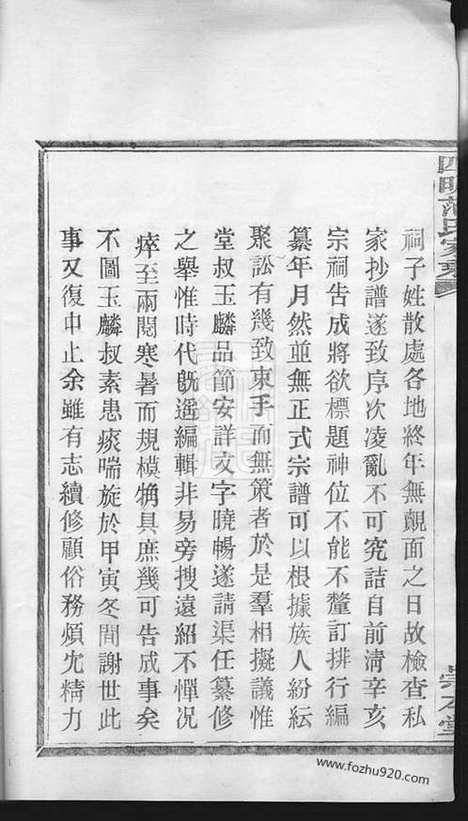 祠子姓散處各地終年無覿面之日故檢查私
家抄譜遂致序次凌亂不可究詰自前淸辛亥
宗祠告成將欲標題神位不能不釐訂排行編
纂年月然並無正式宗譜可以根據族人紛紜
聚訟有幾致束手而無策者於是羣相擬議惟
堂叔玉麟品節安詳文字曉暢遂請渠任纂修
之舉惟時代旣遥編輯非易旁搜遠紹不憚况
瘁至兩閱寒暑而規模犓具庶幾可告成事矣
不圖玉麟叔素患痰喘旋於甲寅冬間謝世此
事又復中止余雖有志續修顧俗務煩冗精力
www.fozhu920.com